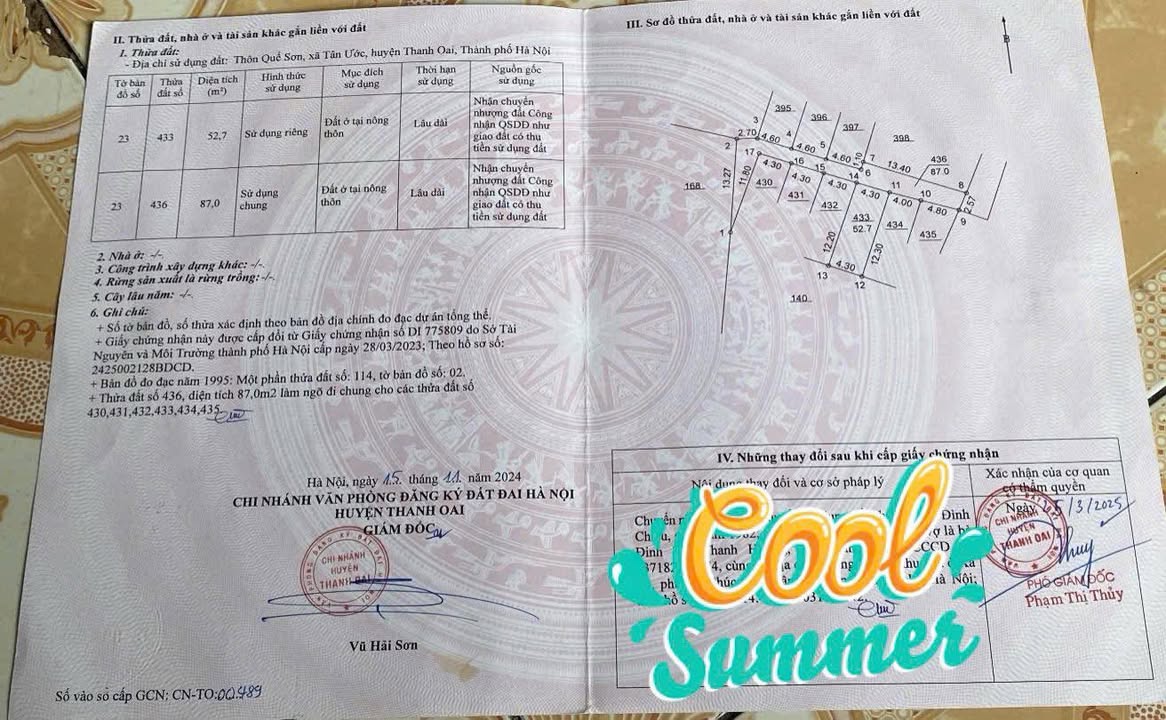 II. Thửa đất, nhà ở và tài sản khác gắn liền với đất
1. Thửa đất:
- Địa chỉ sử dụng đất: Thôn Quế Sơn, xã Tân Ước, huyện Thanh Oai, Thành phố Hà Nội
Tờ bản đồ số | Thửa đất số | Diện tích (m²) | Hình thức sử dụng | Mục đích sử dụng | Thời hạn sử dụng | Nguồn gốc sử dụng
23 | 433 | 52,7 | Sử dụng riêng | Đất ở tại nông thôn | Lâu dài | Nhận chuyển nhượng đất Công nhận QSDĐ như giao đất có thu tiền sử dụng đất
23 | 436 | 87,0 | Sử dụng chung | Đất ở tại nông thôn | Lâu dài | Nhận chuyển nhượng đất Công nhận QSDĐ như giao đất có thu tiền sử dụng đất
2. Nhà ở: -/-
3. Công trình xây dựng khác: -/-.
4. Rừng sản xuất là rừng trồng: -/-.
5. Cây lâu năm: -/-.
6. Ghi chú:
+ Số tờ bản đồ, số thửa xác định theo bản đồ địa chính đo đạc dự án tổng thể.
+ Giấy chứng nhận này được cấp đổi từ Giấy chứng nhận số DI 775809 do Sở Tài
Nguyên và Môi Trường thành phố Hà Nội cấp ngày 28/03/2023; Theo hồ sơ số:
2425002128BDCD.
+ Bản đồ đo đạc năm 1995: Một phần thửa đất số: 114, tờ bản đồ số: 02.
+ Thửa đất số 436, diện tích 87,0m2 làm ngõ đi chung cho các thửa đất số
430,431,432,433,434,435
Hà Nội, ngày 15 tháng 11 năm 2024
CHI NHÁNH VĂN PHÒNG ĐĂNG KÝ ĐẤT ĐAI HÀ NỘI
HUYỆN THANH OAI
GIÁM ĐỐC
CHI NHÁNH
HUYỆN
THANH OAI
Vũ Hải Sơn
Số vào sổ cấp GCN: CN-TO:00789
III. Sơ đồ thửa đất, nhà ở và tài sản khác gắn liền với đất
B
395
396
397
398
3
2.70
4.60
4
4.60
5
4.60
1.10
7
6
13.40
436
87.0
8
2.57
9
2
17
16
15
14
11
10
4.30
4.30
4.30
4.30
4.00
4.80
13.27
11.80
168
430
431
432
433
52.7
434
435
1
12.20
12.30
4.30
13
12
140
IV. Những thay đổi sau khi cấp giấy chứng nhận
Nội dung thay đổi và cơ sở pháp lý
Xác nhận của cơ quan
có thẩm quyền
Đình
Đình
Nội;
Ngày 5/3/2025
CHI NHÁNH
HUYỆN
THANH OAI
PHÓ GIÁM ĐỐC
Phạm Thị Thủy
Cool
Summer